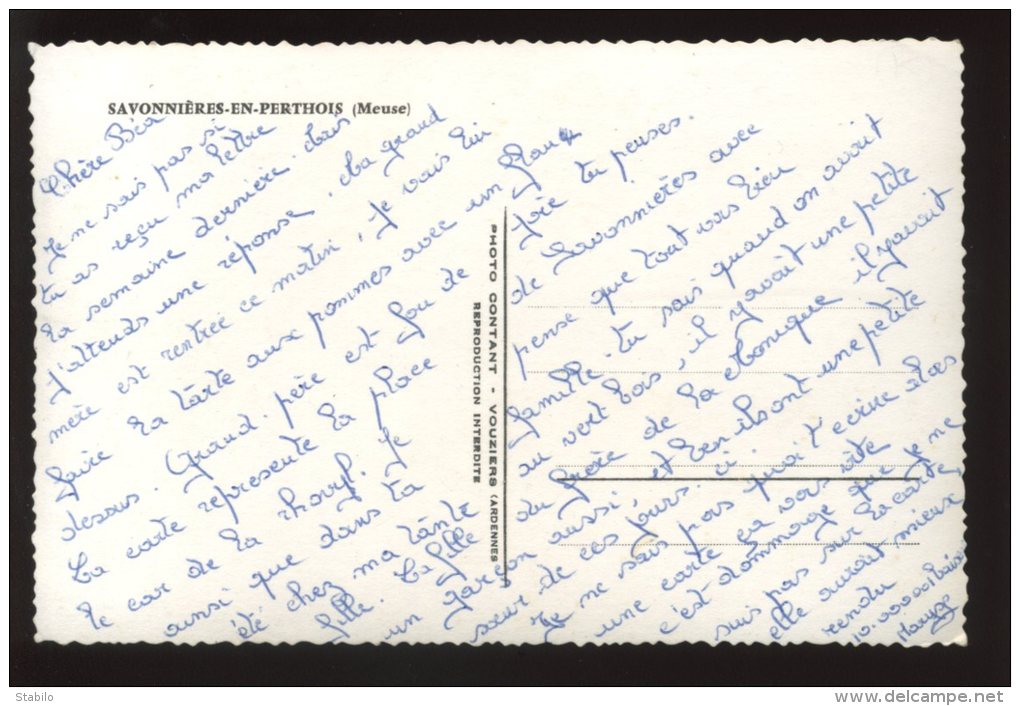 SAVONNIÈRES-EN-PERTHOIS (Meuse)
Chère Béa
Je ne sais pas si
tu as reçu ma lettre
la semaine dernière. dois
J'attends une réponse. Ma grand
mère est rentrée ce matin, Je vais lui
faire la tarte aux pommes avec un flan
dessus. Grand-père est fou de
La carte represente la place
le car de la
ainsi que dans ta
été chez ma tante
fille. La fille
un garçon
joie tu penses.
de Savonnières avec
pense que tout vas bien
famille. tu sais quand on avait
au vert bois, il y avait une petite
du frère de la Monique il y avait
en aussi et ben ils ont une petite
sœur de ces jours. ci.
Je ne sais pas quoi t'ecrire alors
une carte ça vas vite
c'est dommage que je ne
suis pas sur la carte,
elle aurait mieux
rendu
10.000.001 baisi
PHOTO CONTANT - VOUZIERS (ARDENNES)
REPRODUCTION INTERDITE
Stabilo
www.delcampe.net